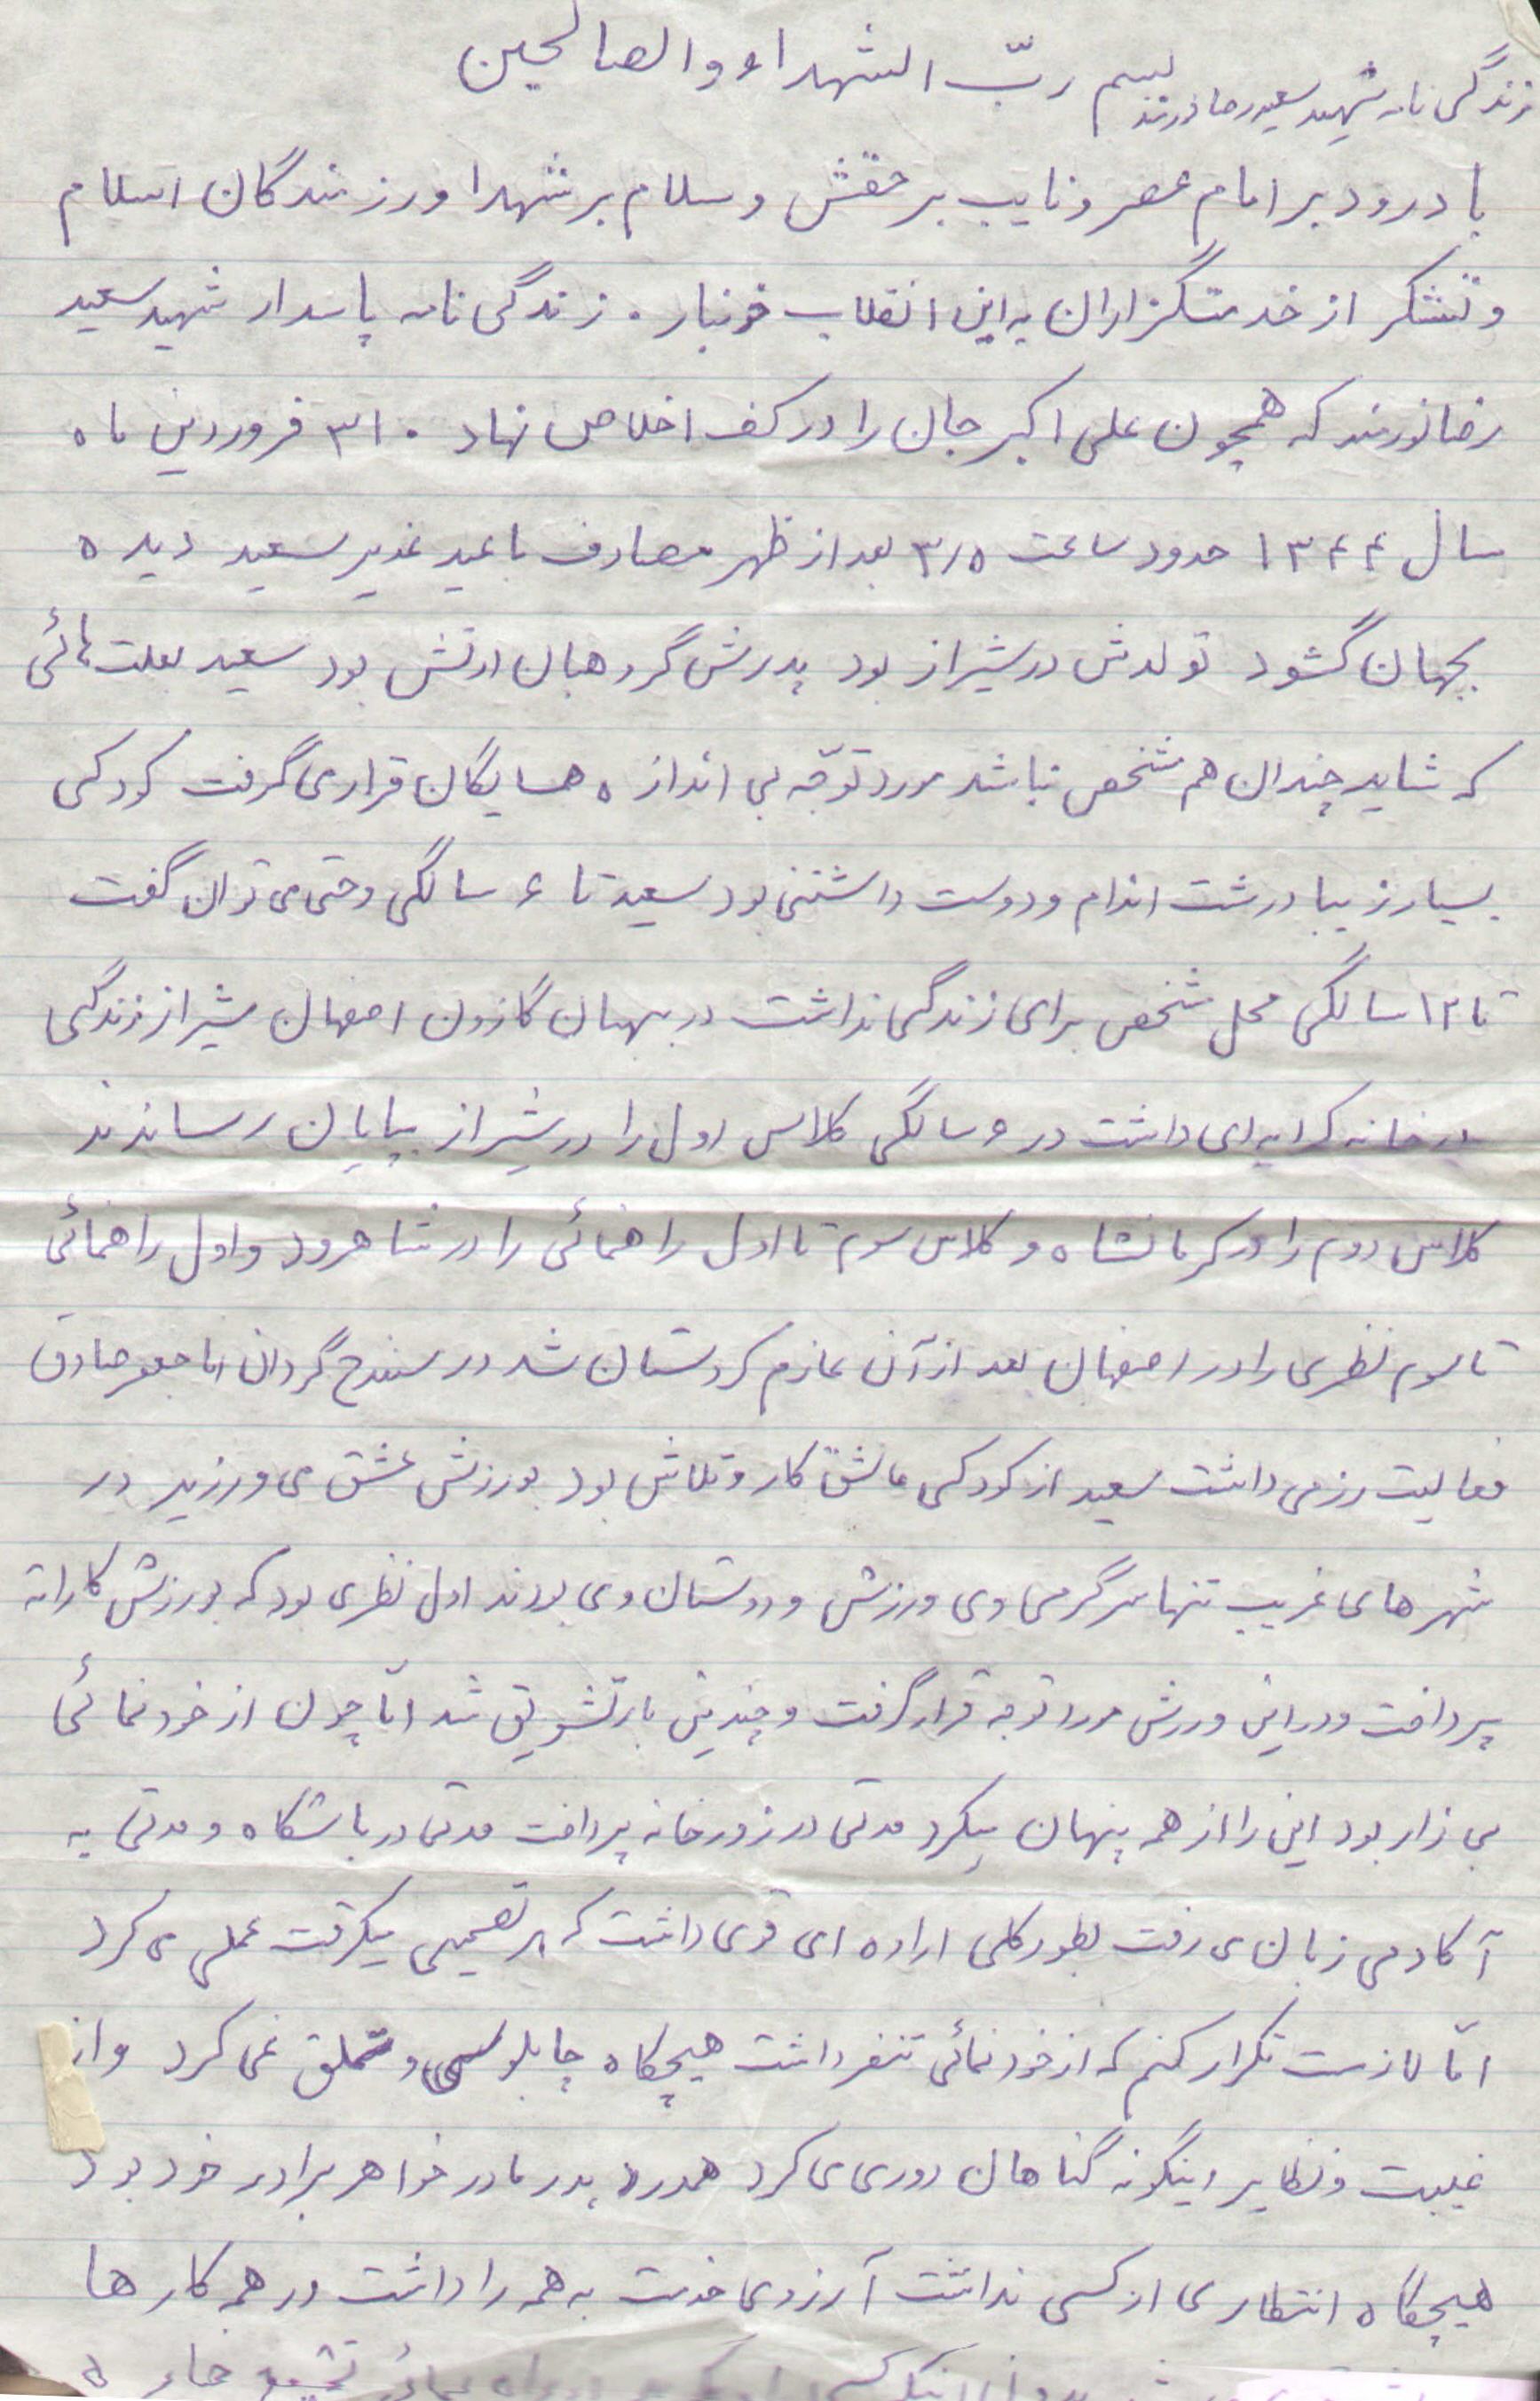 بسم ربّ الشهداء والصالحین
زندگی نامه شهید سعید رضا نورمند
با درود بر امام عصر و نایب بر حقش و سلام بر شهدا و رزمندگان اسلام
و تشکر از خدمتگزاران به این انقلاب خونبار. زندگی نامه پاسدار شهید سعید
رضا نورمند که همچون علی اکبر جان را در کف اخلاص نهاد. ۳۱ فروردین ماه
سال ۱۳۴۴ حدود ساعت ۳/۵ بعد از ظهر مصادف با عید غدیر سعید دیده
بجهان گشود تولدش در شیراز بود پدرش گروهبان ارتش بود سعید بعلت هائی
که شاید چندان هم مشخص نباشد مورد توّجه بی اندازه همسایگان قرار می گرفت کودکی
بسیار زیبا درشت اندام و دوست داشتنی بود سعید تا ۶ سالگی و حتی می توان گفت
تا ۱۲ سالگی محل مشخص برای زندگی نداشت در بهبهان کازرون اصفهان شیراز زندگی
در خانه کرایه ای داشت در ۶ سالگی کلاس اول را در شیراز بپایان رساندند
کلاس دوم را در کرمانشاه و کلاس سوم تا اول راهنمائی را در شاهرود و اول راهنمائی
تا سوم نظری را در اصفهان بعد از آن عازم کردستان شد در سنندج گردان امام جعفر صادق
فعالیت رزمی داشت سعید از کودکی عاشق کار و تلاش بود بورزش عشق می ورزید در
شهرهای غریب تنها سرگرمی وی ورزش و دوستان وی بودند اول نظری بود که بورزش کاراته
پرداخت و در این ورزش مورد توجه قرار گرفت و چندین بار تشویق شد امّا چون از خودنمائی
بی زار بود این را از همه پنهان میکرد مدتی در زورخانه پرداخت مدتی در باشگاه و مدتی به
آکادمی زبان می رفت بطور کلی اراده ای قوی داشت که هر تصمیمی میگرفت عملی می کرد
امّا لازمست تکرار کنم که از خودنمائی تنفر داشت هیچگاه چاپلوسی و تملق نمی کرد و از
غیبت و نظایر اینگونه گناهان دوری می کرد همدرد پدر مادر خواهر برادر خود بود
هیچگاه انتظاری از کسی نداشت آرزوی خدمت به همه را داشت در همه کارها